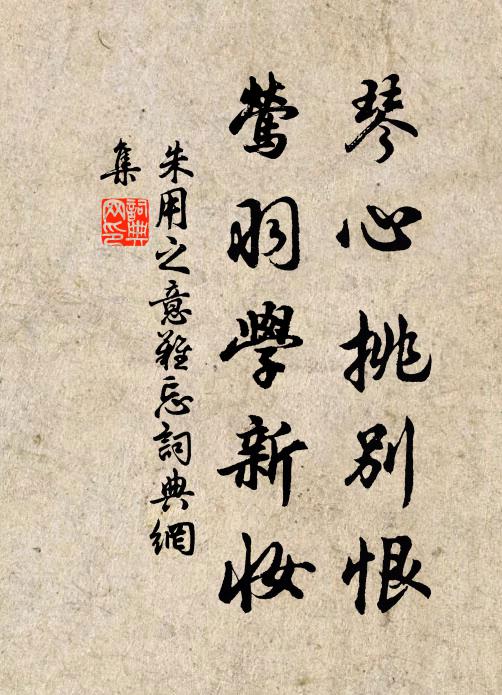 琴心挑別恨
鶯羽學新妝
朱用之意難忘詞典網
集
詞典網印